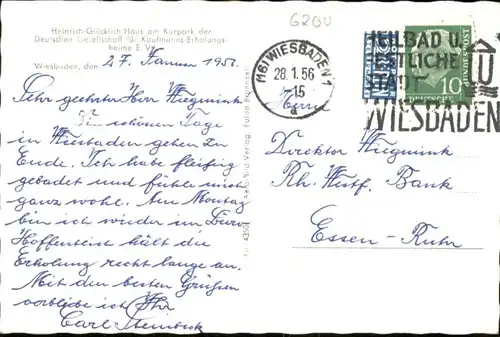 Heinrich-Glücklich-Haus am Kurpark der
Deutschen Gesellschaft für Kaufmanns-Erholungs-
heime E.V.
Wiesbaden, den 27. Januar 195
Sehr geehrter Herr Wiegmink
Die schönen Tage
in Wiesbaden gehen zu
Ende. Ich habe fleißig
gebadet und fühle mich
ganz wohl. Am Montag
bin ich wieder im Büro
Hoffentlich hält die
Erholung recht lange an.
Mit den besten Grüssen
verbleibe ich Ihr
Carl
6200
(16) WIESBADEN 1
28.1.56
15
a
HEILBAD U.
FESTLICHE
STADT
WIESBADEN
10
DEUTSCHE
BUNDESPOST
Herrn
Direktor Wiegmink
Rh. Westf. Bank
Essen-Ruhr